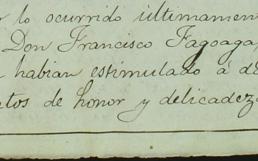 lo ocurrido últimamen
Don Francisco Fagoaga,
habian estimulado á d
tos de honor y delicadez